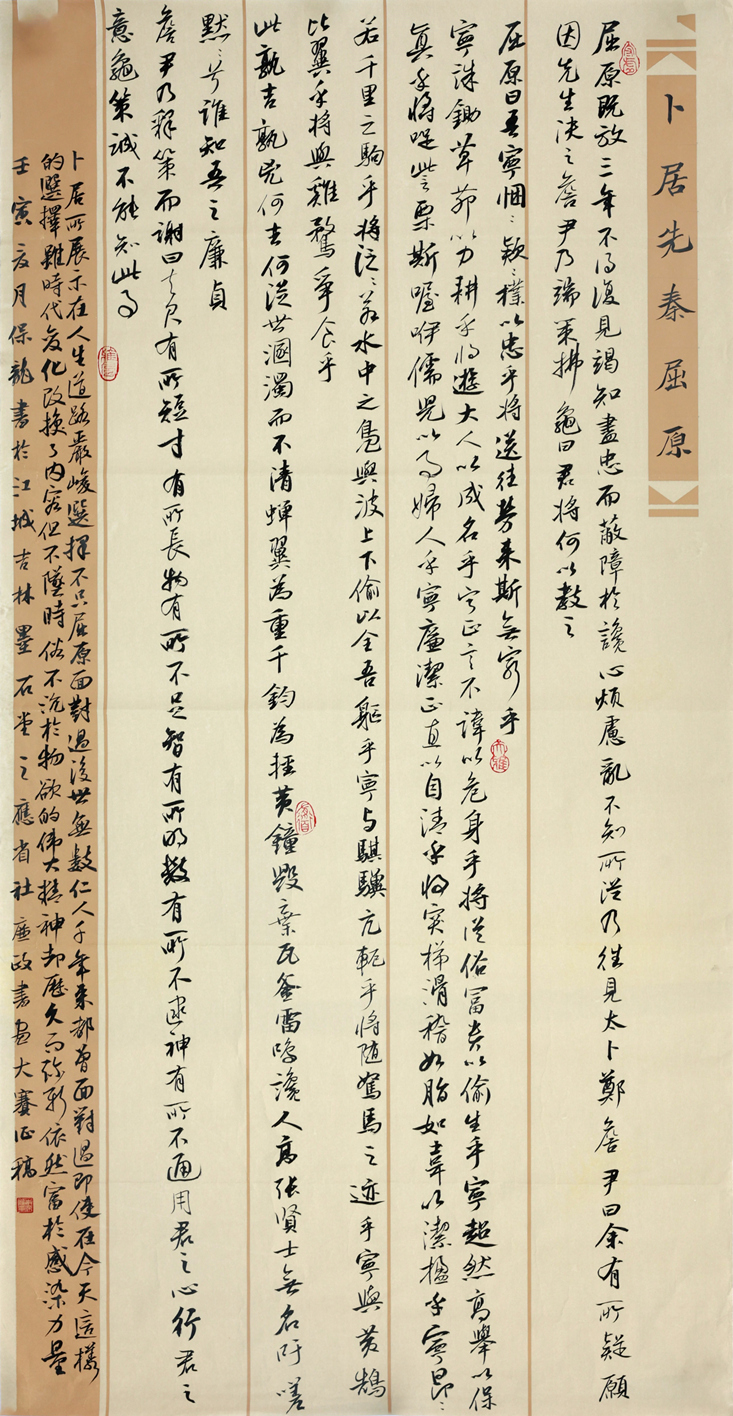 卜居先秦屈原
屈原既放三年不得復見竭知盡忠而蔽障於讒心煩慮亂不知所從乃往見太卜鄭詹尹曰余有所疑願
因先生決之詹尹乃端策拂龜曰君將何以教之
屈原曰吾寧悃〻款〻樸以忠乎將送往勞来斯無窮乎
寧誅鋤草茆以力耕乎將遊大人以成名乎寧正言不諱以危身乎將從俗富貴以偷生乎寧超然高舉以保
真乎將哫訾栗斯喔咿儒兒以事婦人乎寧廉潔正直以自清乎將突梯滑稽如脂如韋以潔楹乎寧昂〻
若千里之駒乎將泛〻若水中之鳧與波上下偷以全吾軀乎寧与騏驥亢軛乎將随駑馬之迹乎寧與黄鵠
比翼乎將與雞鶩爭食乎
此孰吉孰凶何去何從世溷濁而不清蟬翼為重千鈞為輕黄鐘毀棄瓦釜雷鳴讒人高張賢士無名吁嗟
默〻兮誰知吾之廉貞
詹尹乃釋策而謝曰夫尺有所短寸有所長物有所不足智有所明數有所不逮神有所不通用君之心行君之
意龜策誠不能知此事
卜居所展示在人生道路嚴峻選擇不只屈原面對過後世無數仁人千年来都曾面對過即使在今天這樣
的選擇雖時代變化改換了内容但不墜時俗不沉於物欲的偉大精神却歷久而弥新依然富於感染力量
壬寅夏月保龍書於江城吉林墨石堂之應省社廉政書畫大賽征稿